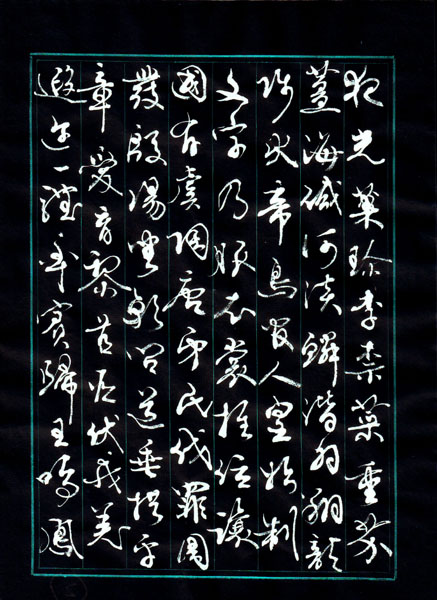 夜光菓珍李柰菜重芥
薑海鹹河淡鱗潛羽翔龍
師火帝鳥官人皇始制
文字乃服衣裳推位讓
國有虞陶唐弔民伐罪周
發殷湯坐朝問道垂拱平
章愛育黎首臣伏戎羌
遐邇一體率賓歸王鳴鳳